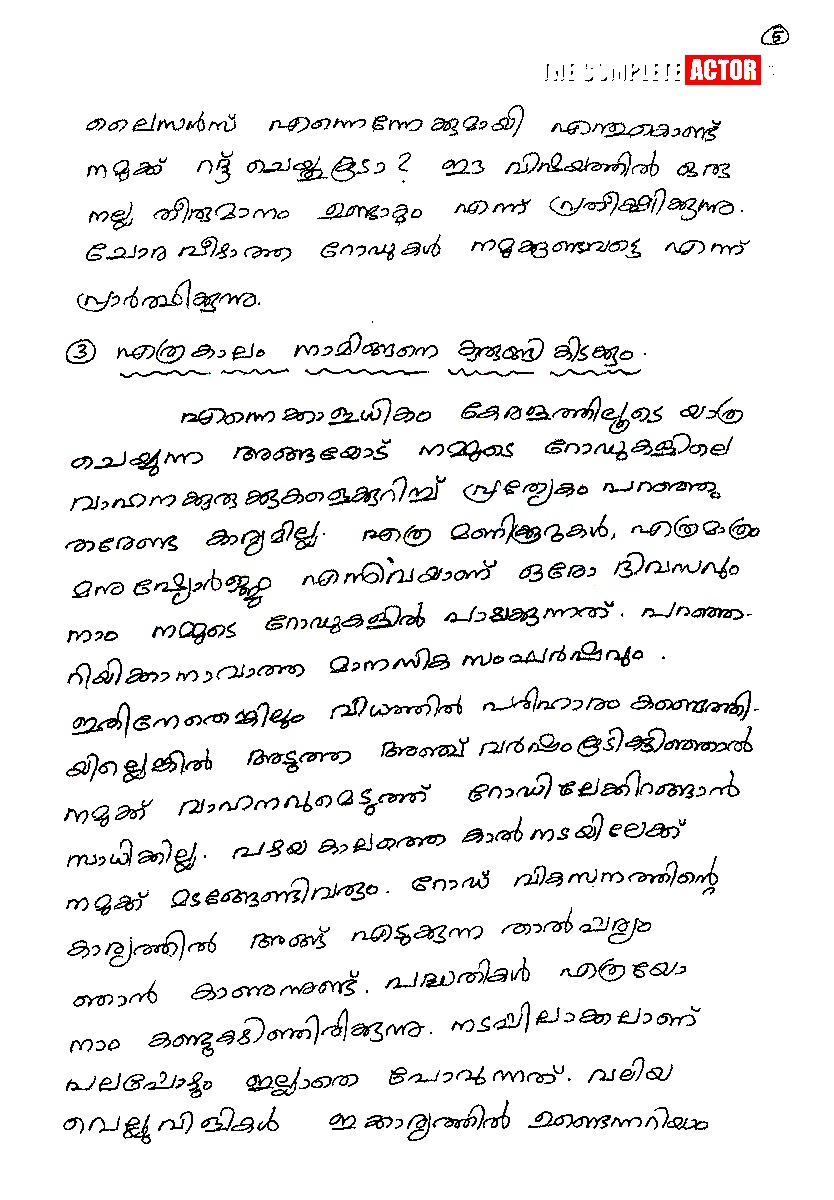 5
THE COMPLETE ACTOR
ലൈസൻസ് എന്നെന്നേക്കുമായി എന്തുകൊണ്ട്
നമുക്ക് റദ്ദ് ചെയ്തുകൂടാ? ഈ വിഷയത്തിൽ ഒരു
നല്ല തീരുമാനം ഉണ്ടാകും എന്ന് പ്രതീക്ഷിക്കുന്നു.
ചോര വീഴാത്ത റോഡുകൾ നമുക്കുണ്ടാവട്ടെ എന്ന്
പ്രാർത്ഥിക്കുന്നു.
③ എത്രകാലം നാമിങ്ങനെ കുരുങ്ങി കിടക്കും.
എന്നെക്കാളധികം കേരളത്തിലൂടെ യാത്ര
ചെയ്യുന്ന അങ്ങയോട് നമ്മുടെ റോഡുകളിലെ
വാഹനക്കുരുക്കുകളെക്കുറിച്ച് പ്രത്യേകം പറഞ്ഞു
തരേണ്ട കാര്യമില്ല. എത്ര മണിക്കൂറുകൾ, എത്രമാത്രം
മനുഷ്യോർജ്ജം എന്നിവയാണ് ഒരോ ദിവസവും
നാം നമ്മുടെ റോഡുകളിൽ പാഴാക്കുന്നത്. പറഞ്ഞ-
റിയിക്കാനാവാത്ത മാനസിക സംഘർഷവും.
ഇതിനേതെങ്കിലും വിധത്തിൽ പരിഹാരം കണ്ടെത്തി-
യില്ലെങ്കിൽ അടുത്ത അഞ്ച് വർഷംകൂടികഴിഞ്ഞാൽ
നമുക്ക് വാഹനവുമെടുത്ത് റോഡിലേക്കിറങ്ങാൻ
സാധിക്കില്ല. പഴയ കാലത്തെ കാൽനടയിലേക്ക്
നമുക്ക് മടങ്ങേണ്ടിവരും. റോഡ് വികസനത്തിന്റെ
കാര്യത്തിൽ അങ്ങ് എടുക്കുന്ന താൽപര്യം
ഞാൻ കാണുന്നുണ്ട്. പദ്ധതികൾ എത്രയോ
നാം കണ്ടുകഴിഞ്ഞിരിക്കുന്നു. നടപ്പിലാക്കലാണ്
പലപ്പോഴും ഇല്ലാതെ പോവുന്നത്. വലിയ
വെല്ലുവിളികൾ ഇക്കാര്യത്തിൽ ഉണ്ടെന്നറിയാം